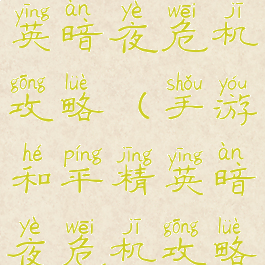 yīng àn yè wēi jī
英暗夜危机
gōng lüè shǒu yóu
攻略(手游
hé píng jīng yīng àn
和平精英暗
yè wēi jī gōng lüè
夜危机攻略